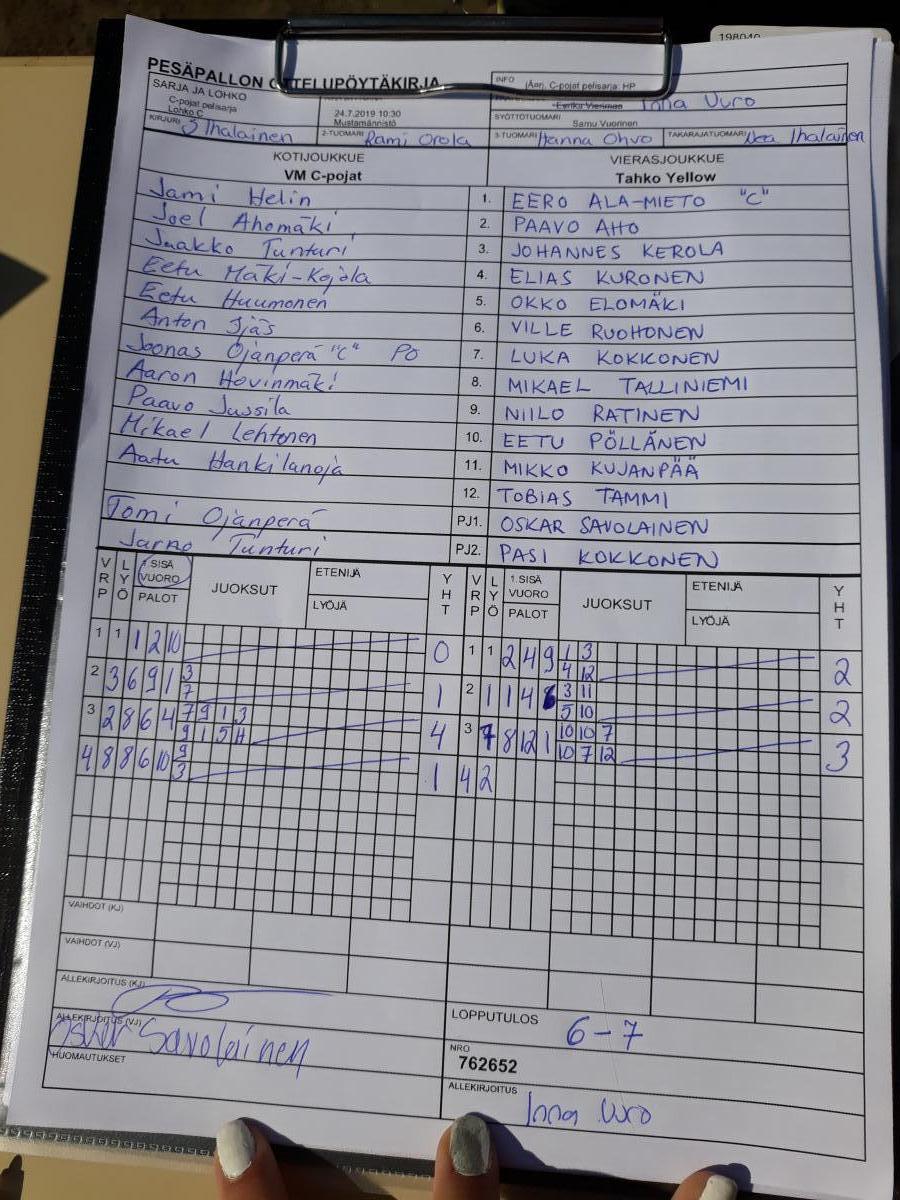 198040
PESÄPALLON OTTELUPÖYTÄKIRJA
SARJA JA LOHKO
C-pojat pelisarja
Lohko C
24.7.2019 10:30
Mustamännistö
INFO
(Aan). C-pojat pelisarja: HP
Inna Uuro
SYÖTTÖTUOMARI
Samu Vuorinen
KIRJURI S Ihalainen
2-TUOMARI Rami Orola
3-TUOMARI Hanna Ohvo
TAKARAJATUOMARI Nea Ihalainen
KOTIJOUKKUE
VM C-pojat
VIERASJOUKKUE
Tahko Yellow
Jami Helin 1. EERO ALA-MIETO "C"
Joel Ahomäki 2. PAAVO AHO
Jaakko Tunturi 3. JOHANNES KEROLA
Eetu Mäki-Kojola 4. ELIAS KURONEN
Eetu Huumonen 5. OKKO ELOMÄKI
Anton Ijäs 6. VILLE RUOHONEN
Joonas Ojanperä "C" PO 7. LUKA KOKKONEN
Aaron Hovinmäki 8. MIKAEL TALLINIEMI
Paavo Jussila 9. NIILO RATINEN
Mikael Lehtonen 10. EETU PÖLLÄNEN
Aatu Hankilanoja 11. MIKKO KUJANPÄÄ
12. TOBIAS TAMMI
Tomi Ojanperä PJ1. OSKAR SAVOLAINEN
Jarno Tunturi PJ2. PASI KOKKONEN
VRP LYÖ 1.SISÄ VUORO PALOT JUOKSUT ETENIJÄ LYÖJÄ YHT
VRP LYÖ 1.SISÄ VUORO PALOT JUOKSUT ETENIJÄ LYÖJÄ YHT
1 1 1 2 10 0
2 3 6 9 1 3 1
7
3 2 8 6 4 7 9 1 3 4
9 1 5 11
4 8 8 6 10 9 1
3
1 1 2 4 9 1 3 2
4 12
2 1 1 4 6 3 11 2
5 10
3 7 8 12 1 10 10 7 3
10 7 12
4 2
VAIHDOT (KJ)
VAIHDOT (VJ)
ALLEKIRJOITUS (KJ)
ALLEKIRJOITUS (VJ)
Oskar Savolainen
HUOMAUTUKSET
LOPPUTULOS
6-7
NRO
762652
ALLEKIRJOITUS
Inna Uuro